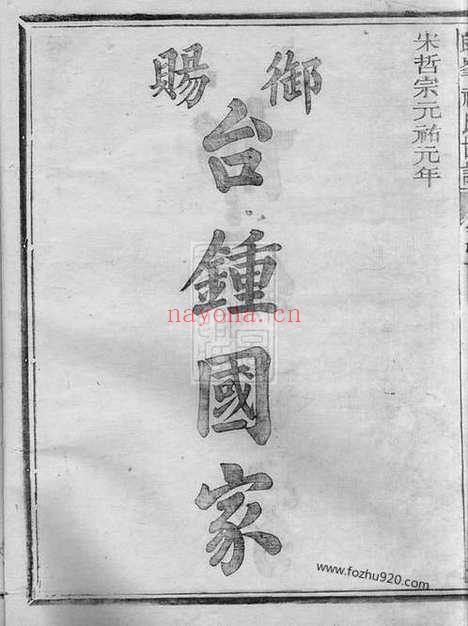 宋哲宗元祐元年
御賜
台鍾國家
nayona.cn
www.fozhu920.com